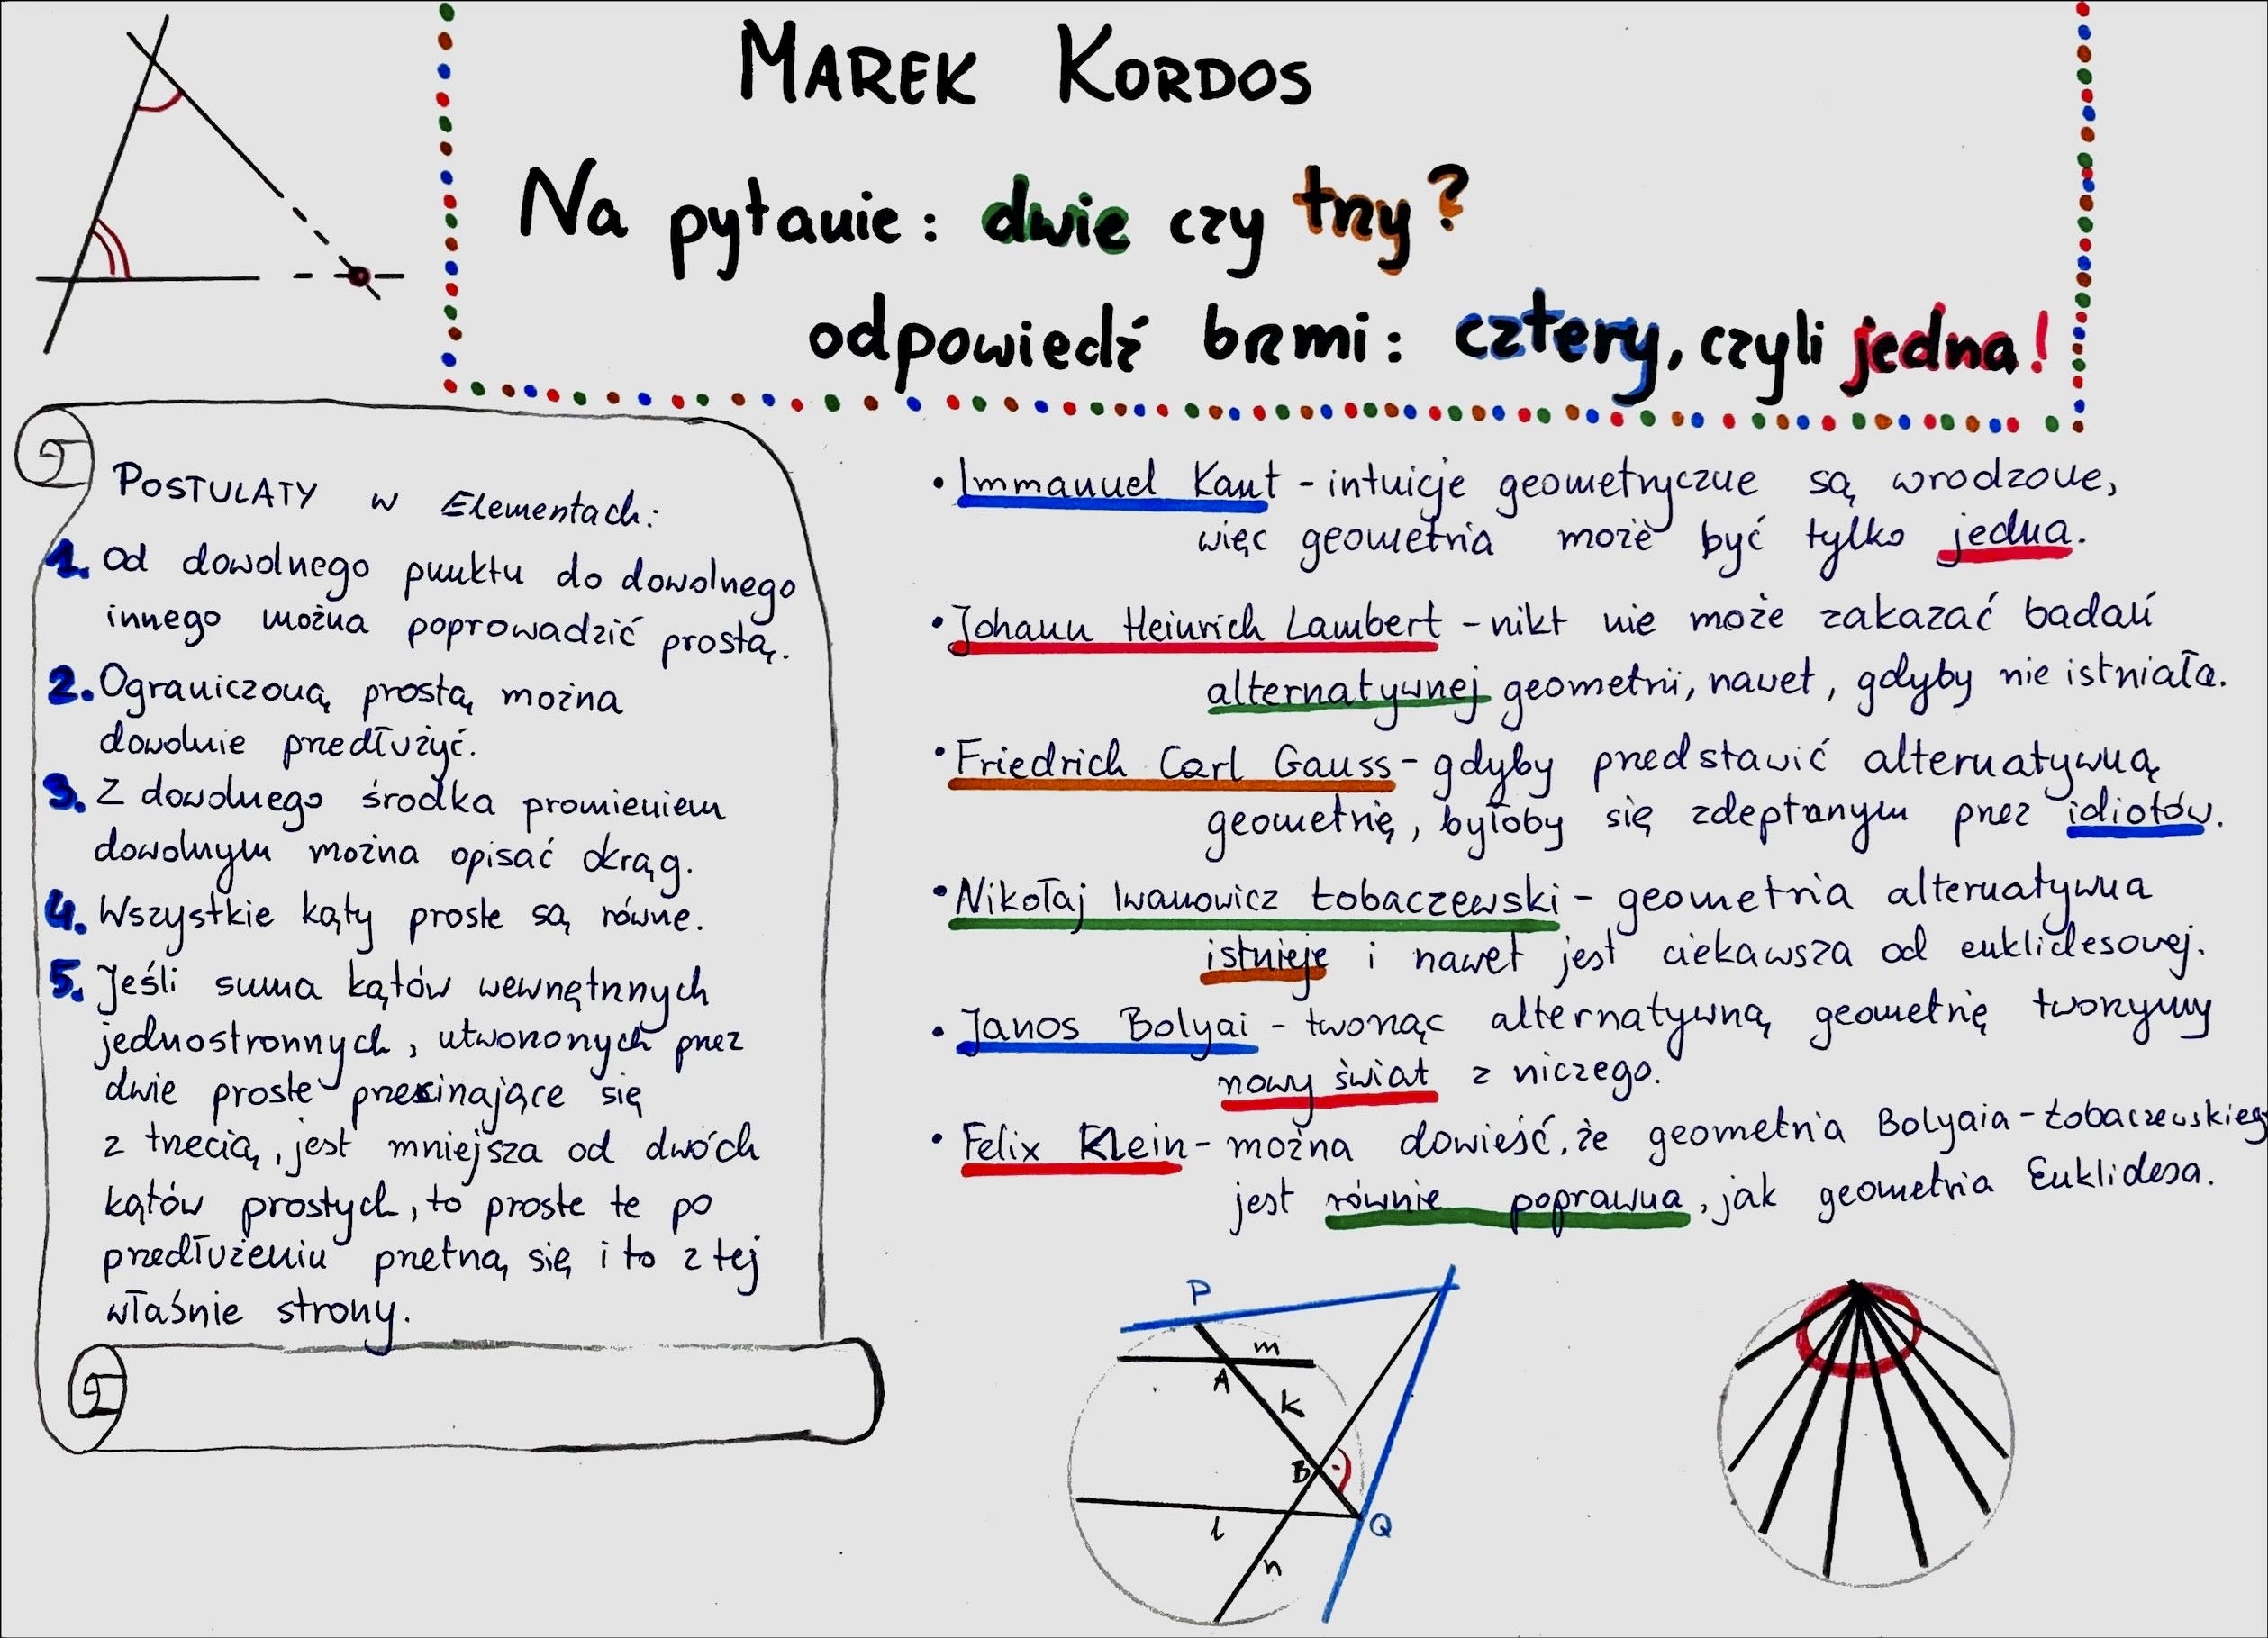 MAREK KORDOS
Na pytanie: dwie czy trzy?
odpowiedź brzmi: cztery, czyli jedna!
POSTULATY w Elementach:
1. Od dowolnego punktu do dowolnego
innego można poprowadzić prostą.
2. Ograniczoną prostą można
dowolnie przedłużyć.
3. Z dowolnego środka promieniem
dowolnym można opisać okrąg.
4. Wszystkie kąty proste są równe.
5. Jeśli suma kątów wewnętrznych
jednostronnych, utworzonych przez
dwie proste przecinające się
z trzecią, jest mniejsza od dwóch
kątów prostych, to proste te po
przedłużeniu przetną się i to z tej
właśnie strony.
• Immanuel Kant - intuicje geometryczne są wrodzone,
więc geometria może być tylko jedna.
• Johann Heinrich Lambert - nikt nie może zakazać badań
alternatywnej geometrii, nawet, gdyby nie istniała.
• Friedrich Carl Gauss - gdyby przedstawić alternatywną
geometrię, byłoby się zdeptanym przez idiotów.
• Nikołaj Iwanowicz Łobaczewski - geometria alternatywna
istnieje i nawet jest ciekawsza od euklidesowej.
• Janos Bolyai - tworząc alternatywną geometrię tworzymy
nowy świat z niczego.
• Felix Klein - można dowieść, że geometria Bolyaia-Łobaczewskieg
jest równie poprawna, jak geometria Euklidesa.
P
m
A
k
B
l
Q
n